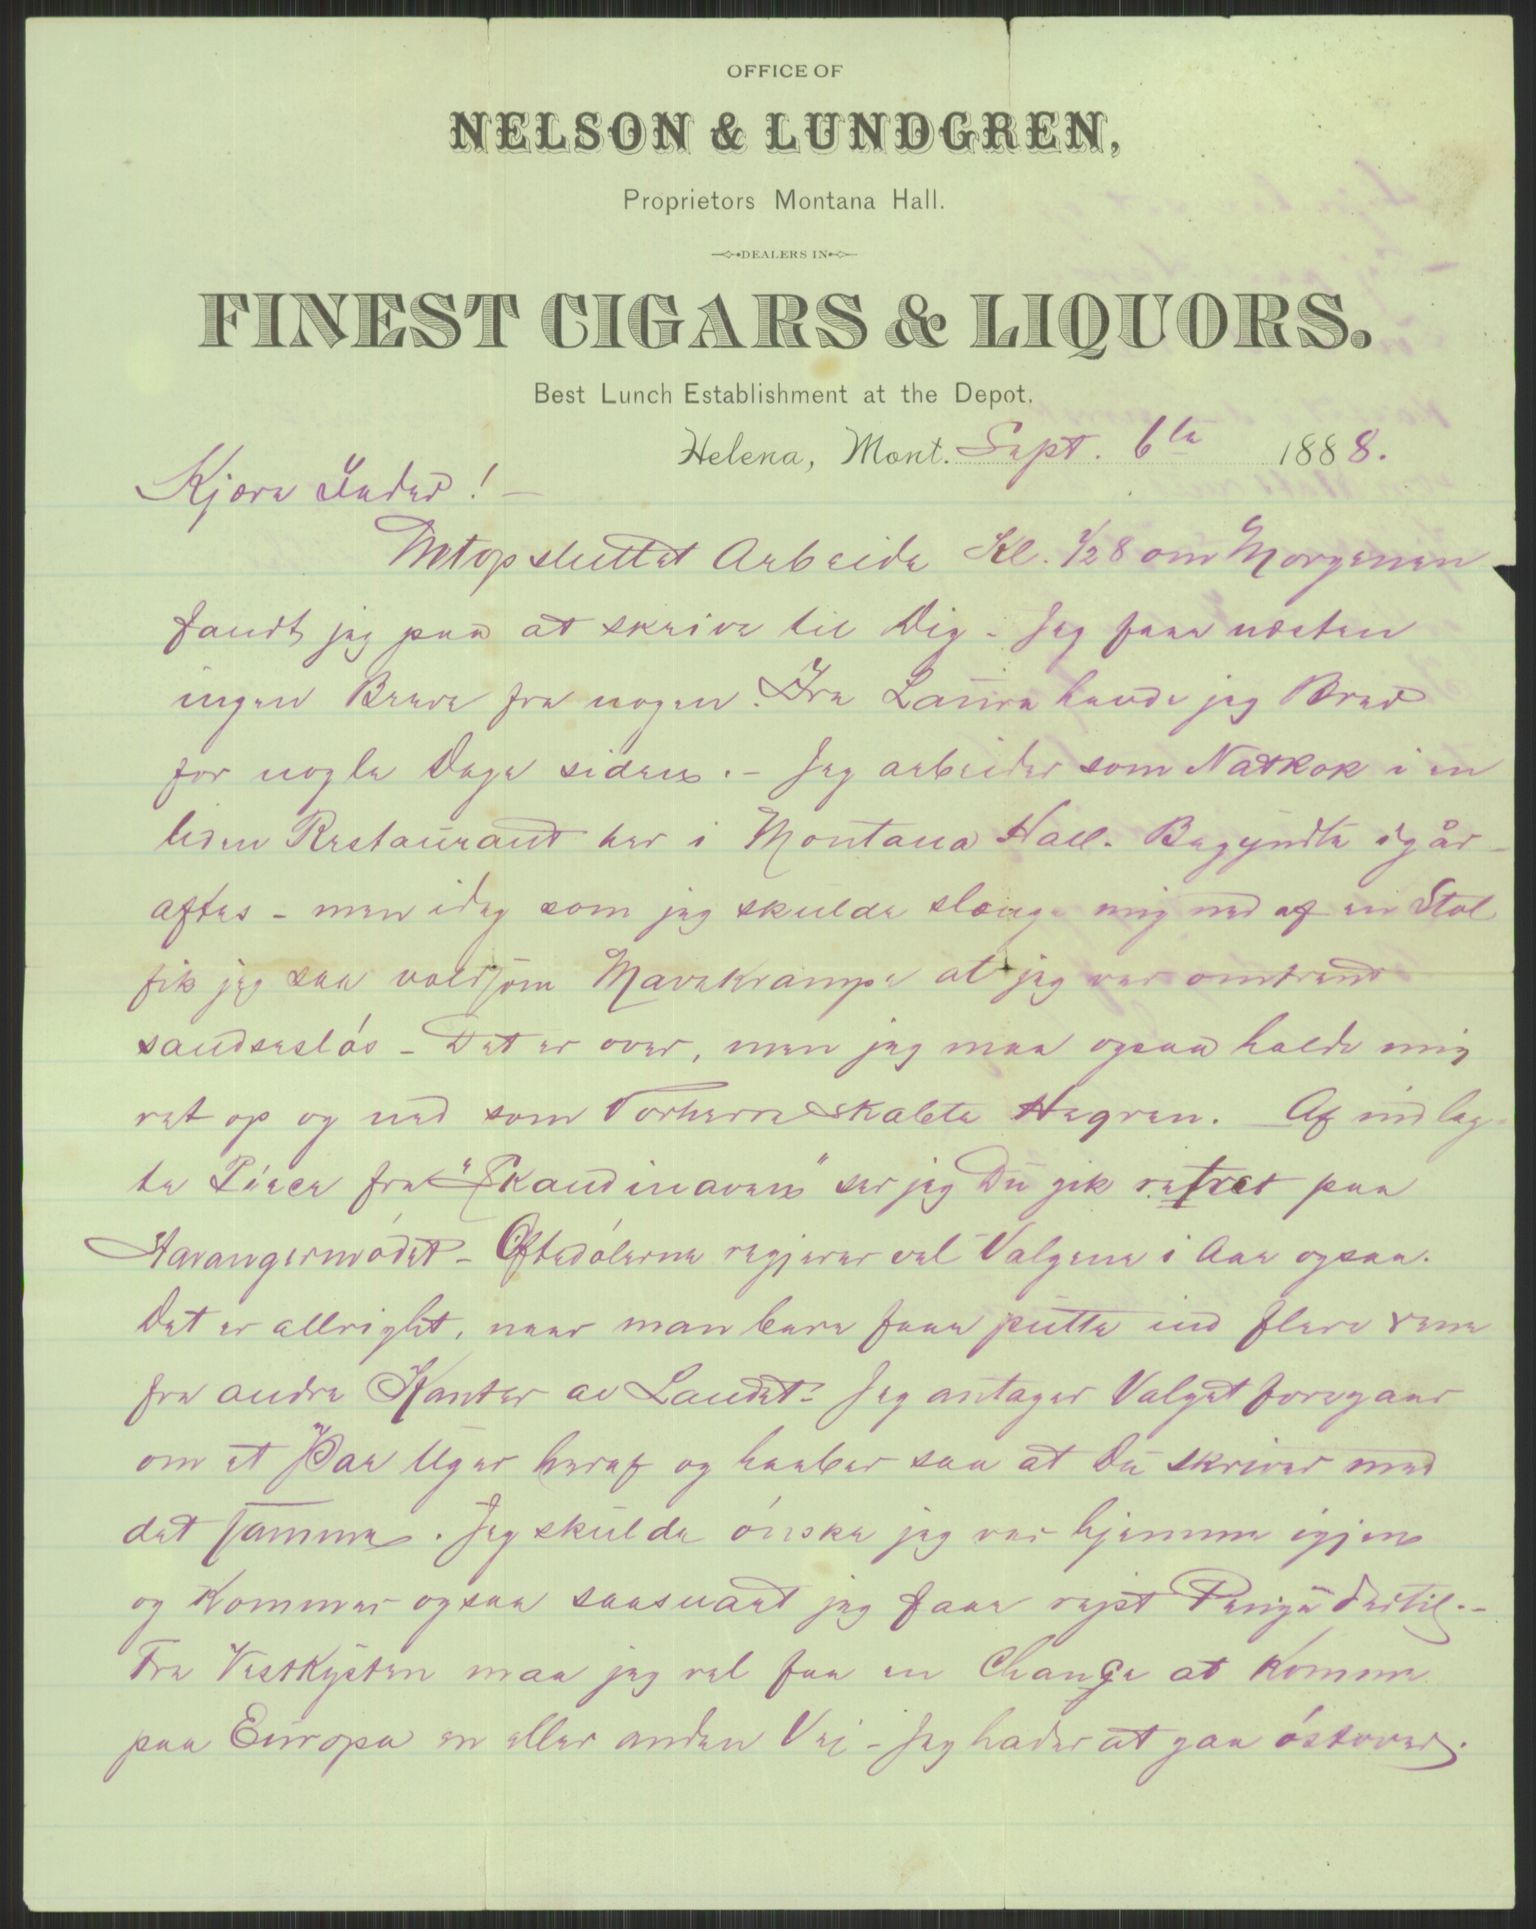 OFFICE OF
NELSON & LUNDGREN,
Proprietors Montana Hall.
DEALERS IN
FINEST CIGARS & LIQUORS.
Best Lunch Establishment at the Depot.
Helena, Mont. Sept. 6te 1888.
Kjære Fader! —
Netop sluttet Arbeide Kl. 1/2 8 om Morgenen
fandt jeg paa at skrive til Dig - Jeg faar næsten
ingen Breve fra nogen. Fra Laura havde jeg Brev
for nogle Dage siden. - Jeg arbeider som Natkok i en
liden Restaurant her i Montana Hall. Begyndte igår
aftes - men idag som jeg skulde slænge mig ned af en Stol
fik jeg saa voldsom Mavekrampe at jeg var omtrent
sandseslós - Det er over, men jeg maa ogsaa holde mig
ret op og ned som Vorherre skabte Hegren. Af indlag-
te Piece fra "Skandinaven" ser jeg Du gik rettret paa
Stavangermódet - Oftedólerne regjerer vel Valgene i Aar ogsaa.
Det er allright, naar man bare faar putte ind flere rene
fra andre Kanter av Landet - Jeg antager Valget foregaar
om et Par Uger heraf og haaber saa at Du skriver med
det samme. Jeg skulde ónske jeg var hjemme igjen
og kommer ogsaa saasnart jeg faar rejst Penge dertil. -
Fra Vestkysten maa jeg vel faa en Change at komme
paa Europa en eller anden Vei - Jeg hader at gaa óstover.